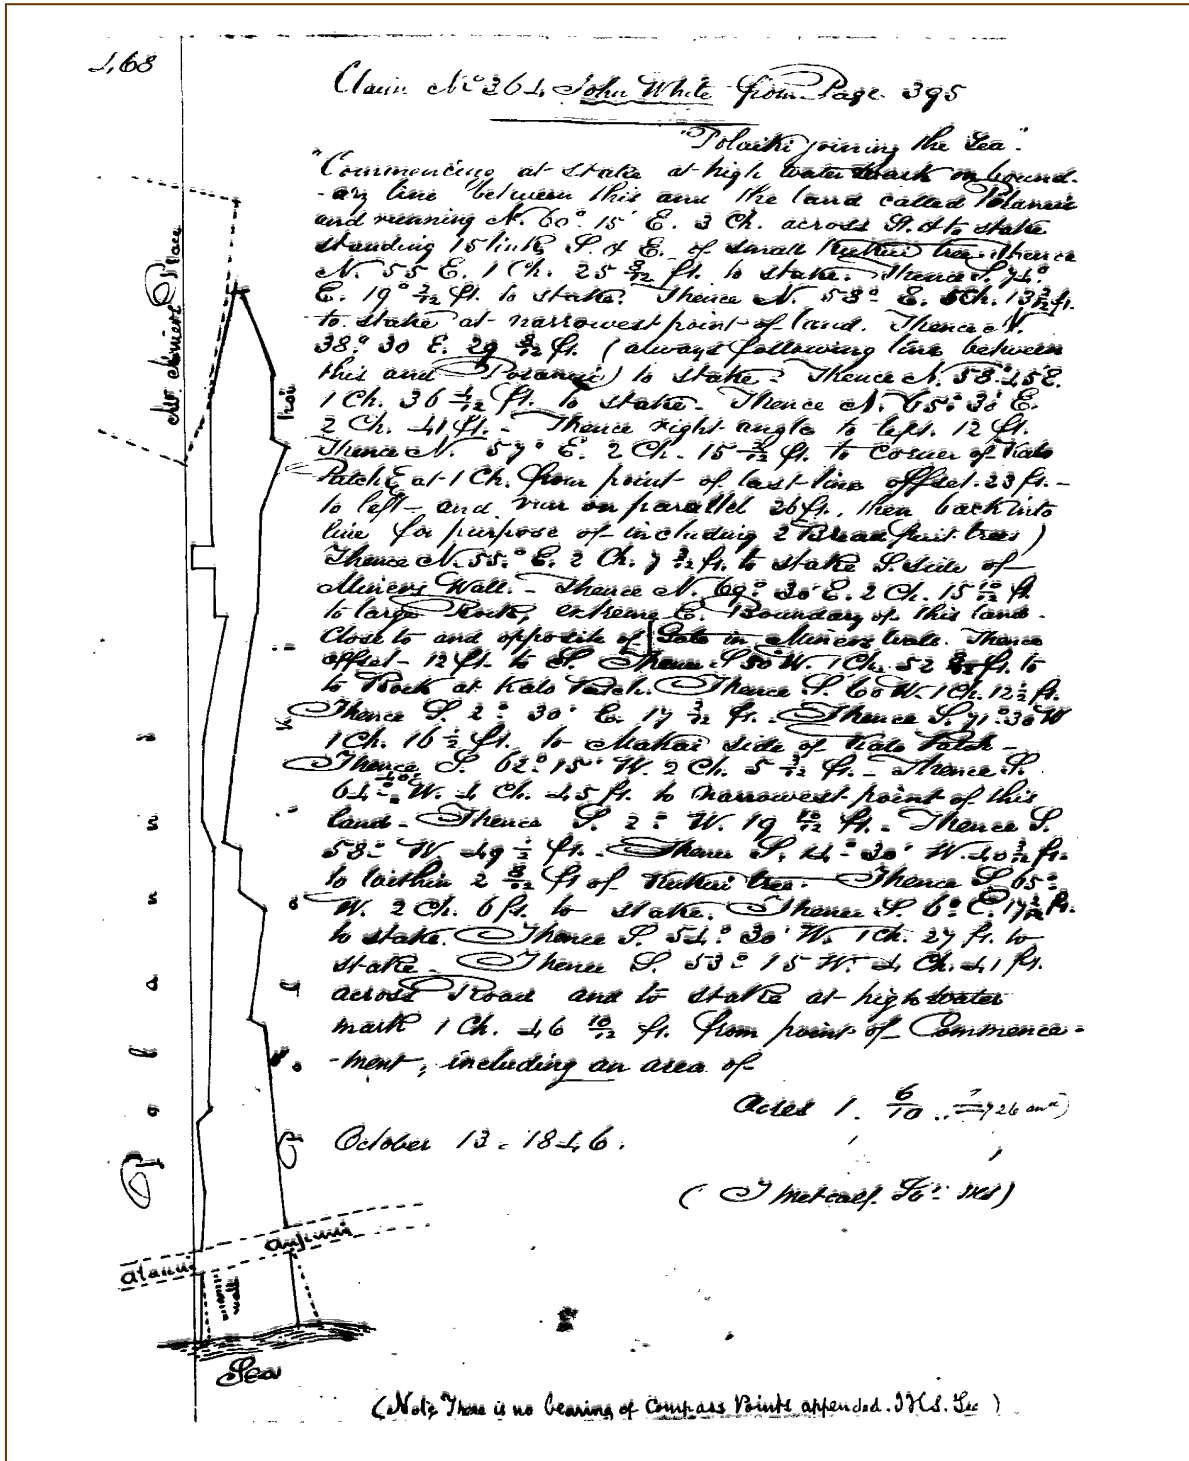 468
Claim No 364 John White from Page 395
"Polaiki joining the Sea."
"Commencing at stake at high water mark on bound-
-ary line between this and the land called Polanui
and running N. 60° 15' E. 3 Ch. across St. & to stake
standing 15 links S. & E. of small Kukui tree. Thence
N. 55 E. 1 Ch. 25 ft. to stake. Thence S. 74°
E. 19 ft. to stake. Thence N. 53° E. 5 Ch. 13 ft.
to stake at narrowest point of land. Thence N.
38° 30 E. 29 ft. (always following line between
this and Polanui) to stake. Thence N. 58° 45 E.
1 Ch. 36 ft. to stake. Thence N. 65° 30 E.
2 Ch. 41 ft. - Thence right angle to left. 12 ft.
Thence N. 57° E. 2 Ch. 15 ft. to corner of Kalo
Patch & at 1 Ch. from point of last line offset 23 ft. -
to left - and run on parallel 26 ft. then back into
line for purpose of including 2 Bread fruit trees)
Thence N. 55° E. 2 Ch. 7 ft. to stake S. side of
Miners Wall. - Thence N. 69° 30 E. 2 Ch. 15 ft.
to large Rock, extreme E. Boundary of this land.
Close to and opposite of Gate in Miners wall. Thence
offset - 12 ft. to S. Thence S 50 W. 1 Ch. 52 ft. to
to Rock at Kalo Patch. Thence S. 60 W. 1 Ch. 12½ ft.
Thence S. 2° 30' E. 17 ft. - Thence S. 71° 30 W
1 Ch. 16½ ft. to Makai side of Kalo Patch -
Thence S. 62° 15' W. 2 Ch. 5 ft. - Thence S.
64° W. 4 Ch. 45 ft. to narrowest point of this
land - Thence S. 2° W. 19 10/12 ft. - Thence S.
58° W 49 ft. - Thence S. 14° 30' W. 40 ft.
to within 2 ft of Kukui tree. Thence S 65°
W. 2 Ch. 6 ft. to stake. Thence S. 6° E. 17 ft.
to stake. Thence S. 54° 30' W. 1 Ch. 27 ft. to
stake - Thence S. 53° 15 W. 4 Ch. 41 ft.
across Road and to stake at high water
mark 1 Ch. 46 10/12 ft. from point of Commence-
-ment, including an area of
Acres 1. 6/10
October 13. 1846.
(T Metcalf.
Place
Alanui
Aupuni
wall
Sea
(Note There is no bearing of Compass Points appended.